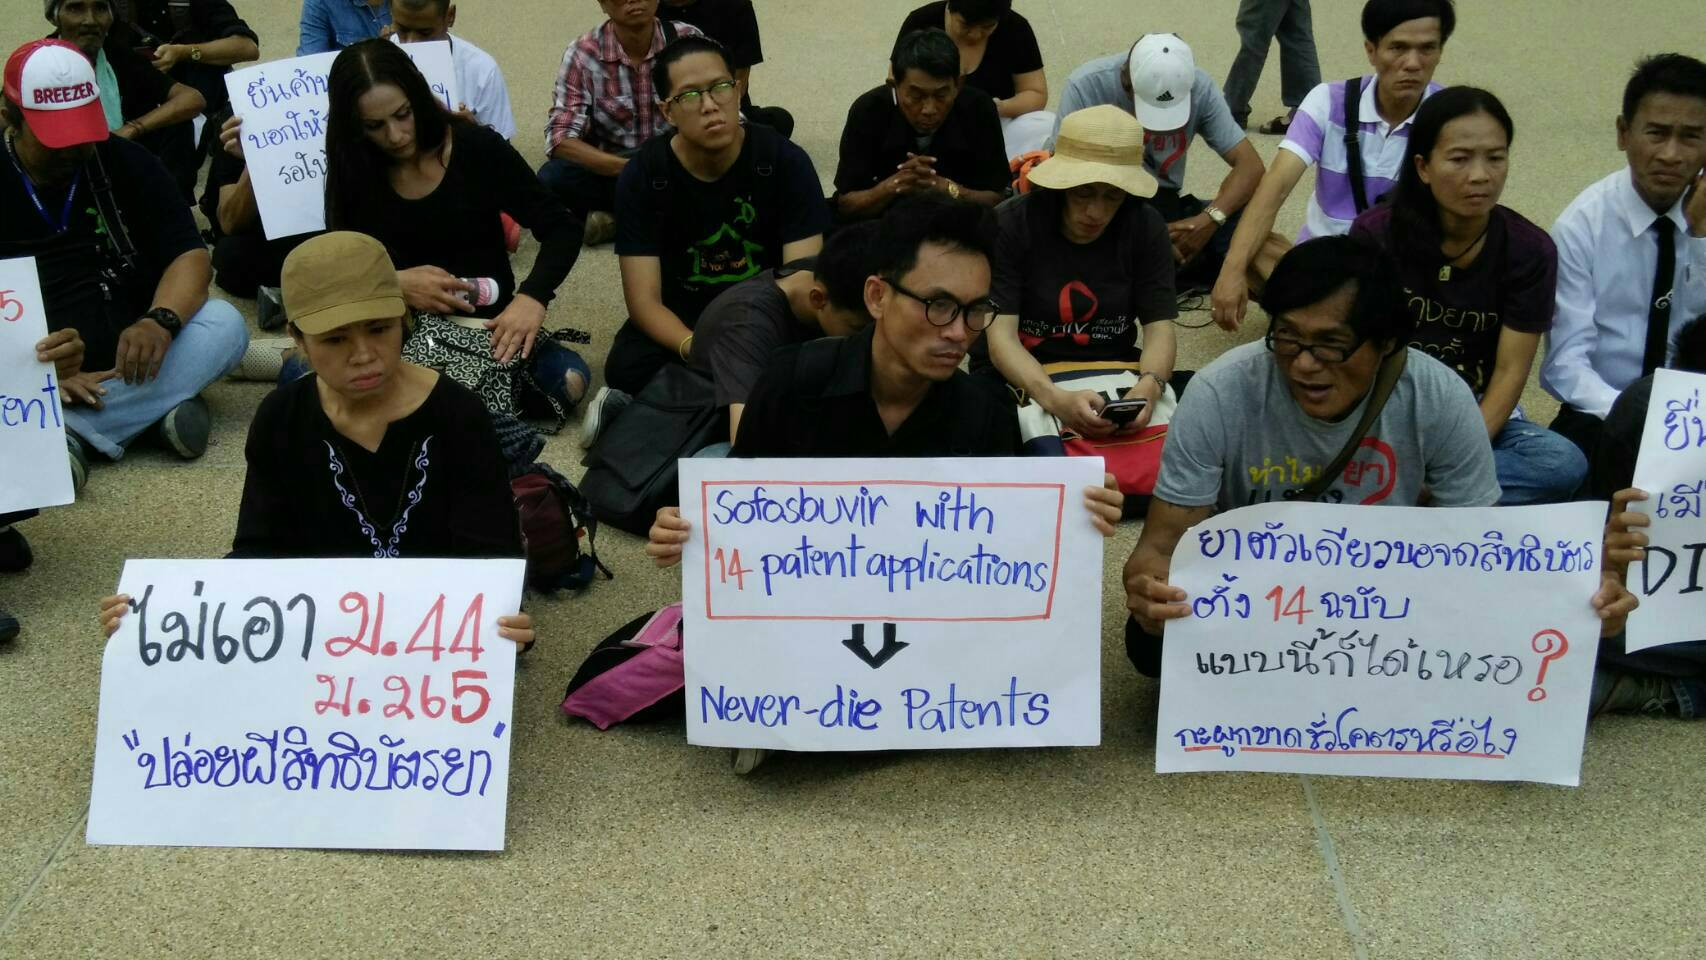 BREEZER
ยื่นค้าน
บอกให้
รอให้
5
tent
HIV
ทำไม ยา
ไม่เอา ม.44
ม.265
"ปล่อยผีสิทธิบัตรยา"
Sofosbuvir with
14 patent applications
Never-die Patents
ยาตัวเดียวขอจดสิทธิบัตร
ตั้ง 14 ฉบับ
แบบนี้ก็ได้เหรอ?
กะผูกขาดชั่วโคตรหรือไง
ยื่น
DI